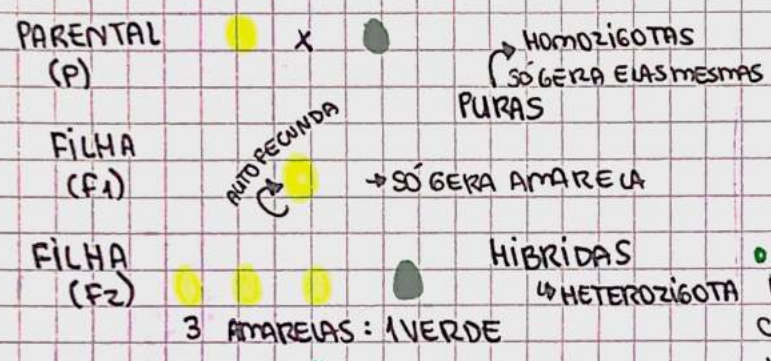 PARENTAL x HOMOZIGOTAS
(P) SÓ GERA ELAS MESMAS
PURAS
FILHA
(F1) AUTOFECUNDA → SÓ GERA AMARELA
FILHA HÍBRIDAS
(F2) ↳ HETEROZIGOTA
3 AMARELAS : 1 VERDE